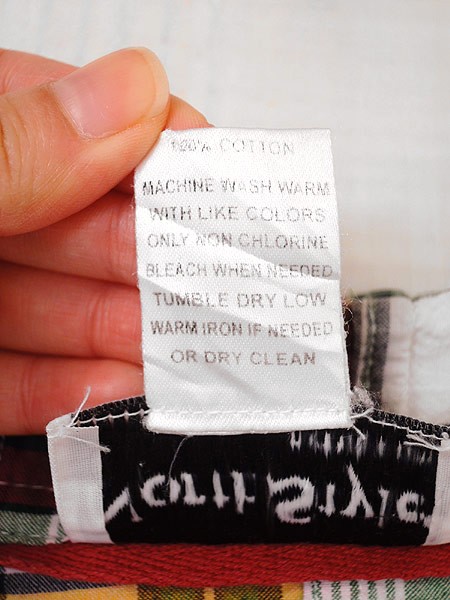 100% COTTON
MACHINE WASH WARM
WITH LIKE COLORS
ONLY NON CHLORINE
BLEACH WHEN NEEDED
TUMBLE DRY LOW
WARM IRON IF NEEDED
OR DRY CLEAN
North Style